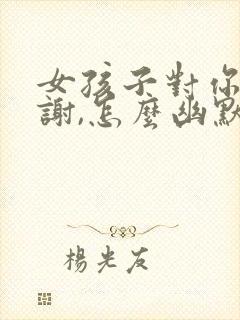 女孩子對你
謝,怎麼幽默
楊光友